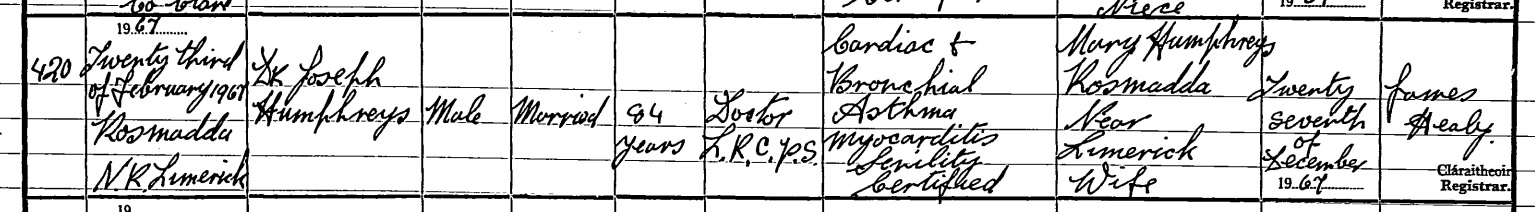 Co Clare
Niece
Registrar.
1967
420
Twenty third
of February 1967
Rosmadda
N.R. Limerick
Dr Joseph
Humphreys
Male
Married
84
years
Doctor
L.R.C.P.S.
Cardiac &
Bronchial
Asthma
Myocarditis
Senility
Certified
Mary Humphreys
Rosmadda
Near
Limerick
Wife
Twenty
seventh
of
December
1967
James
Healy.
Cláraitheoir
Registrar.
19